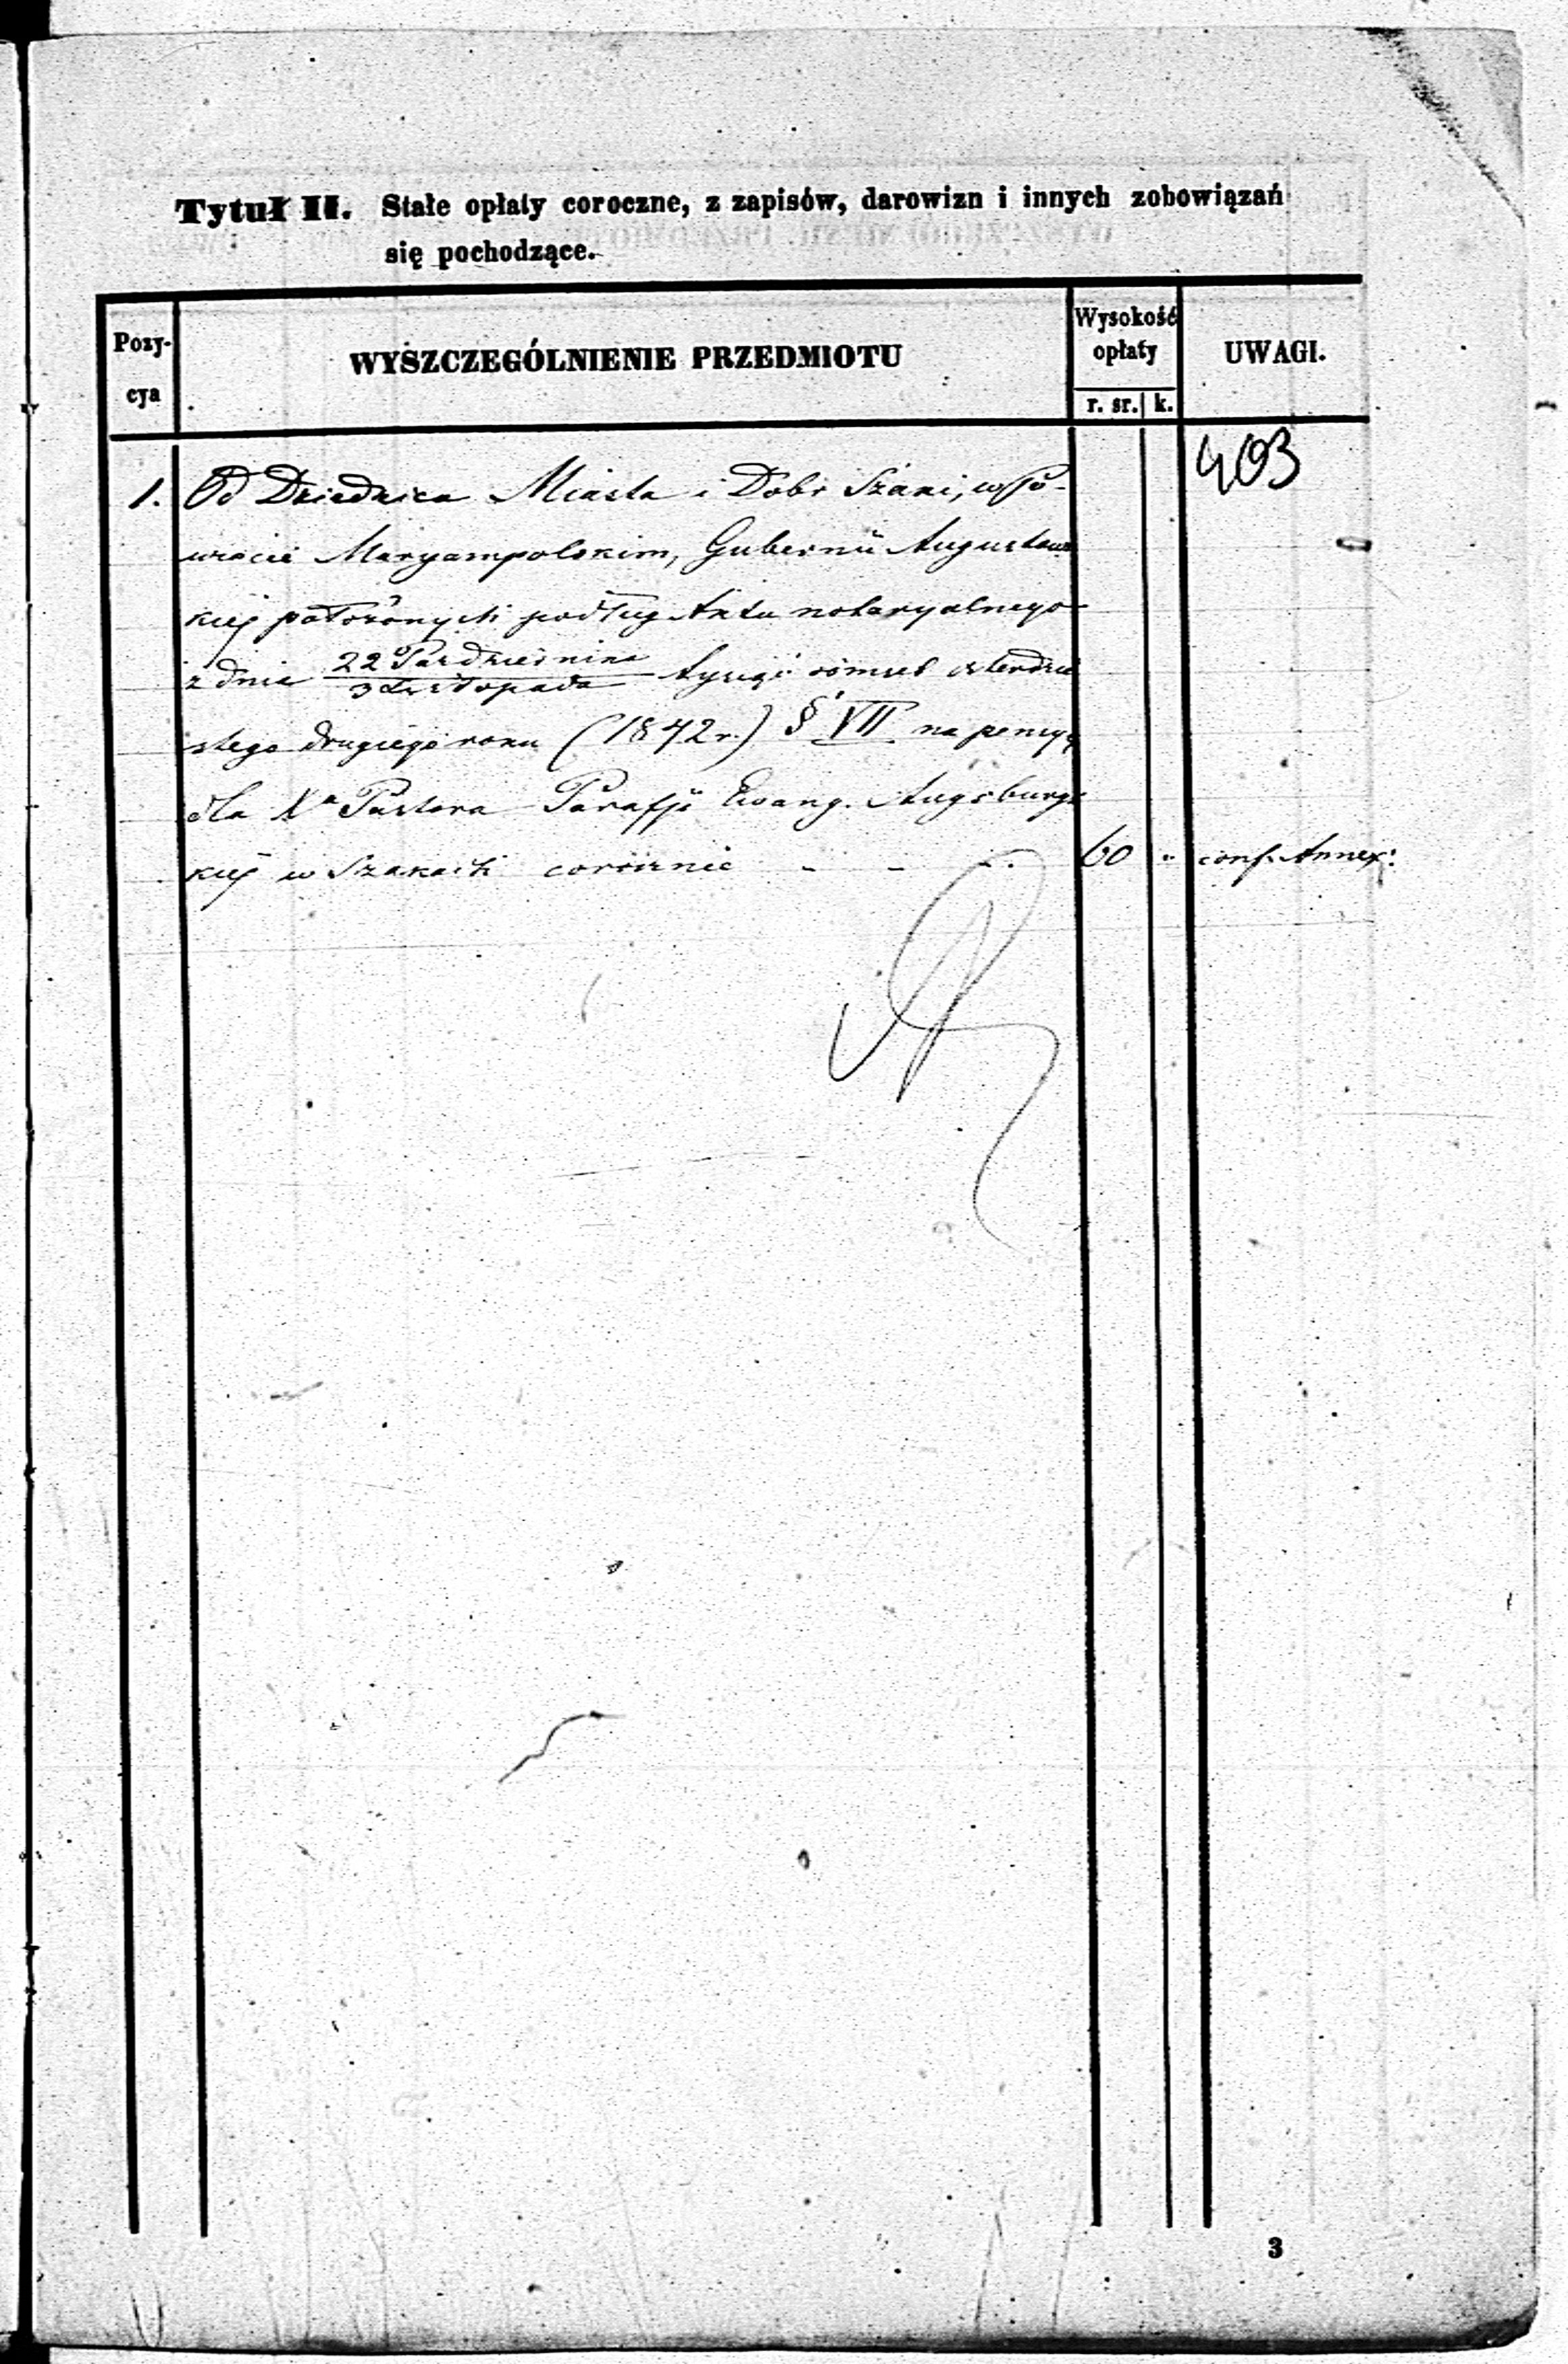 Tytuł II. Stałe opłaty coroczne, z zapisów, darowizn i innych zobowiązań
się pochodzące.
Pozy-
cya
WYSZCZEGÓLNIENIE PRZEDMIOTU
Wysokość
opłaty
r. sr. k.
UWAGI.
403
1. Od Dziedzica Miasta i Dóbr Szaki, w Po-
wiecie Maryampolskim, Gubernii Augustows
kiej położonych podług Aktu notaryalnego
z dnia 22 Października / 3 Listopada tysiąc ośmset czterdzie
stego drugiego roku (1842 r.) § VII na pensyą
dla Xa Pastora Parafji Ewang. Augsburgs
kiej w Szakach corocznie - - - 60 " conf. Annex:
3